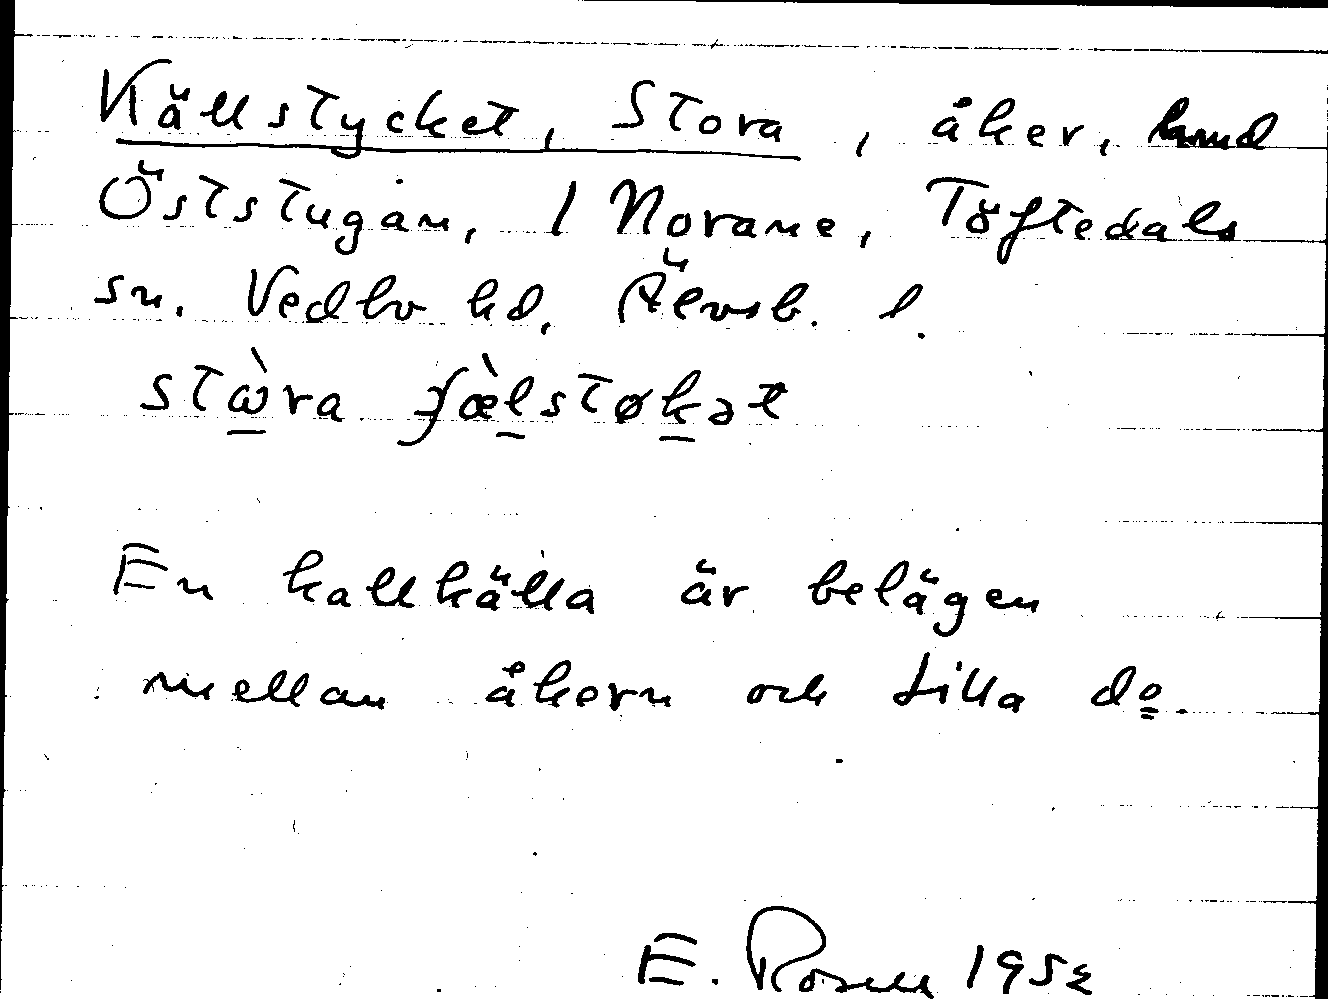 Källstycket, Stora, åker, hmd
Öststugan, 1 Norane, Töftedals
sn. Vedbo hd, Älvsb. l.
stɷ̀ra ʃæ̀lstøkət
En kallkälla är belägen
mellan åkern och Lilla do.
E. Rosell 1952